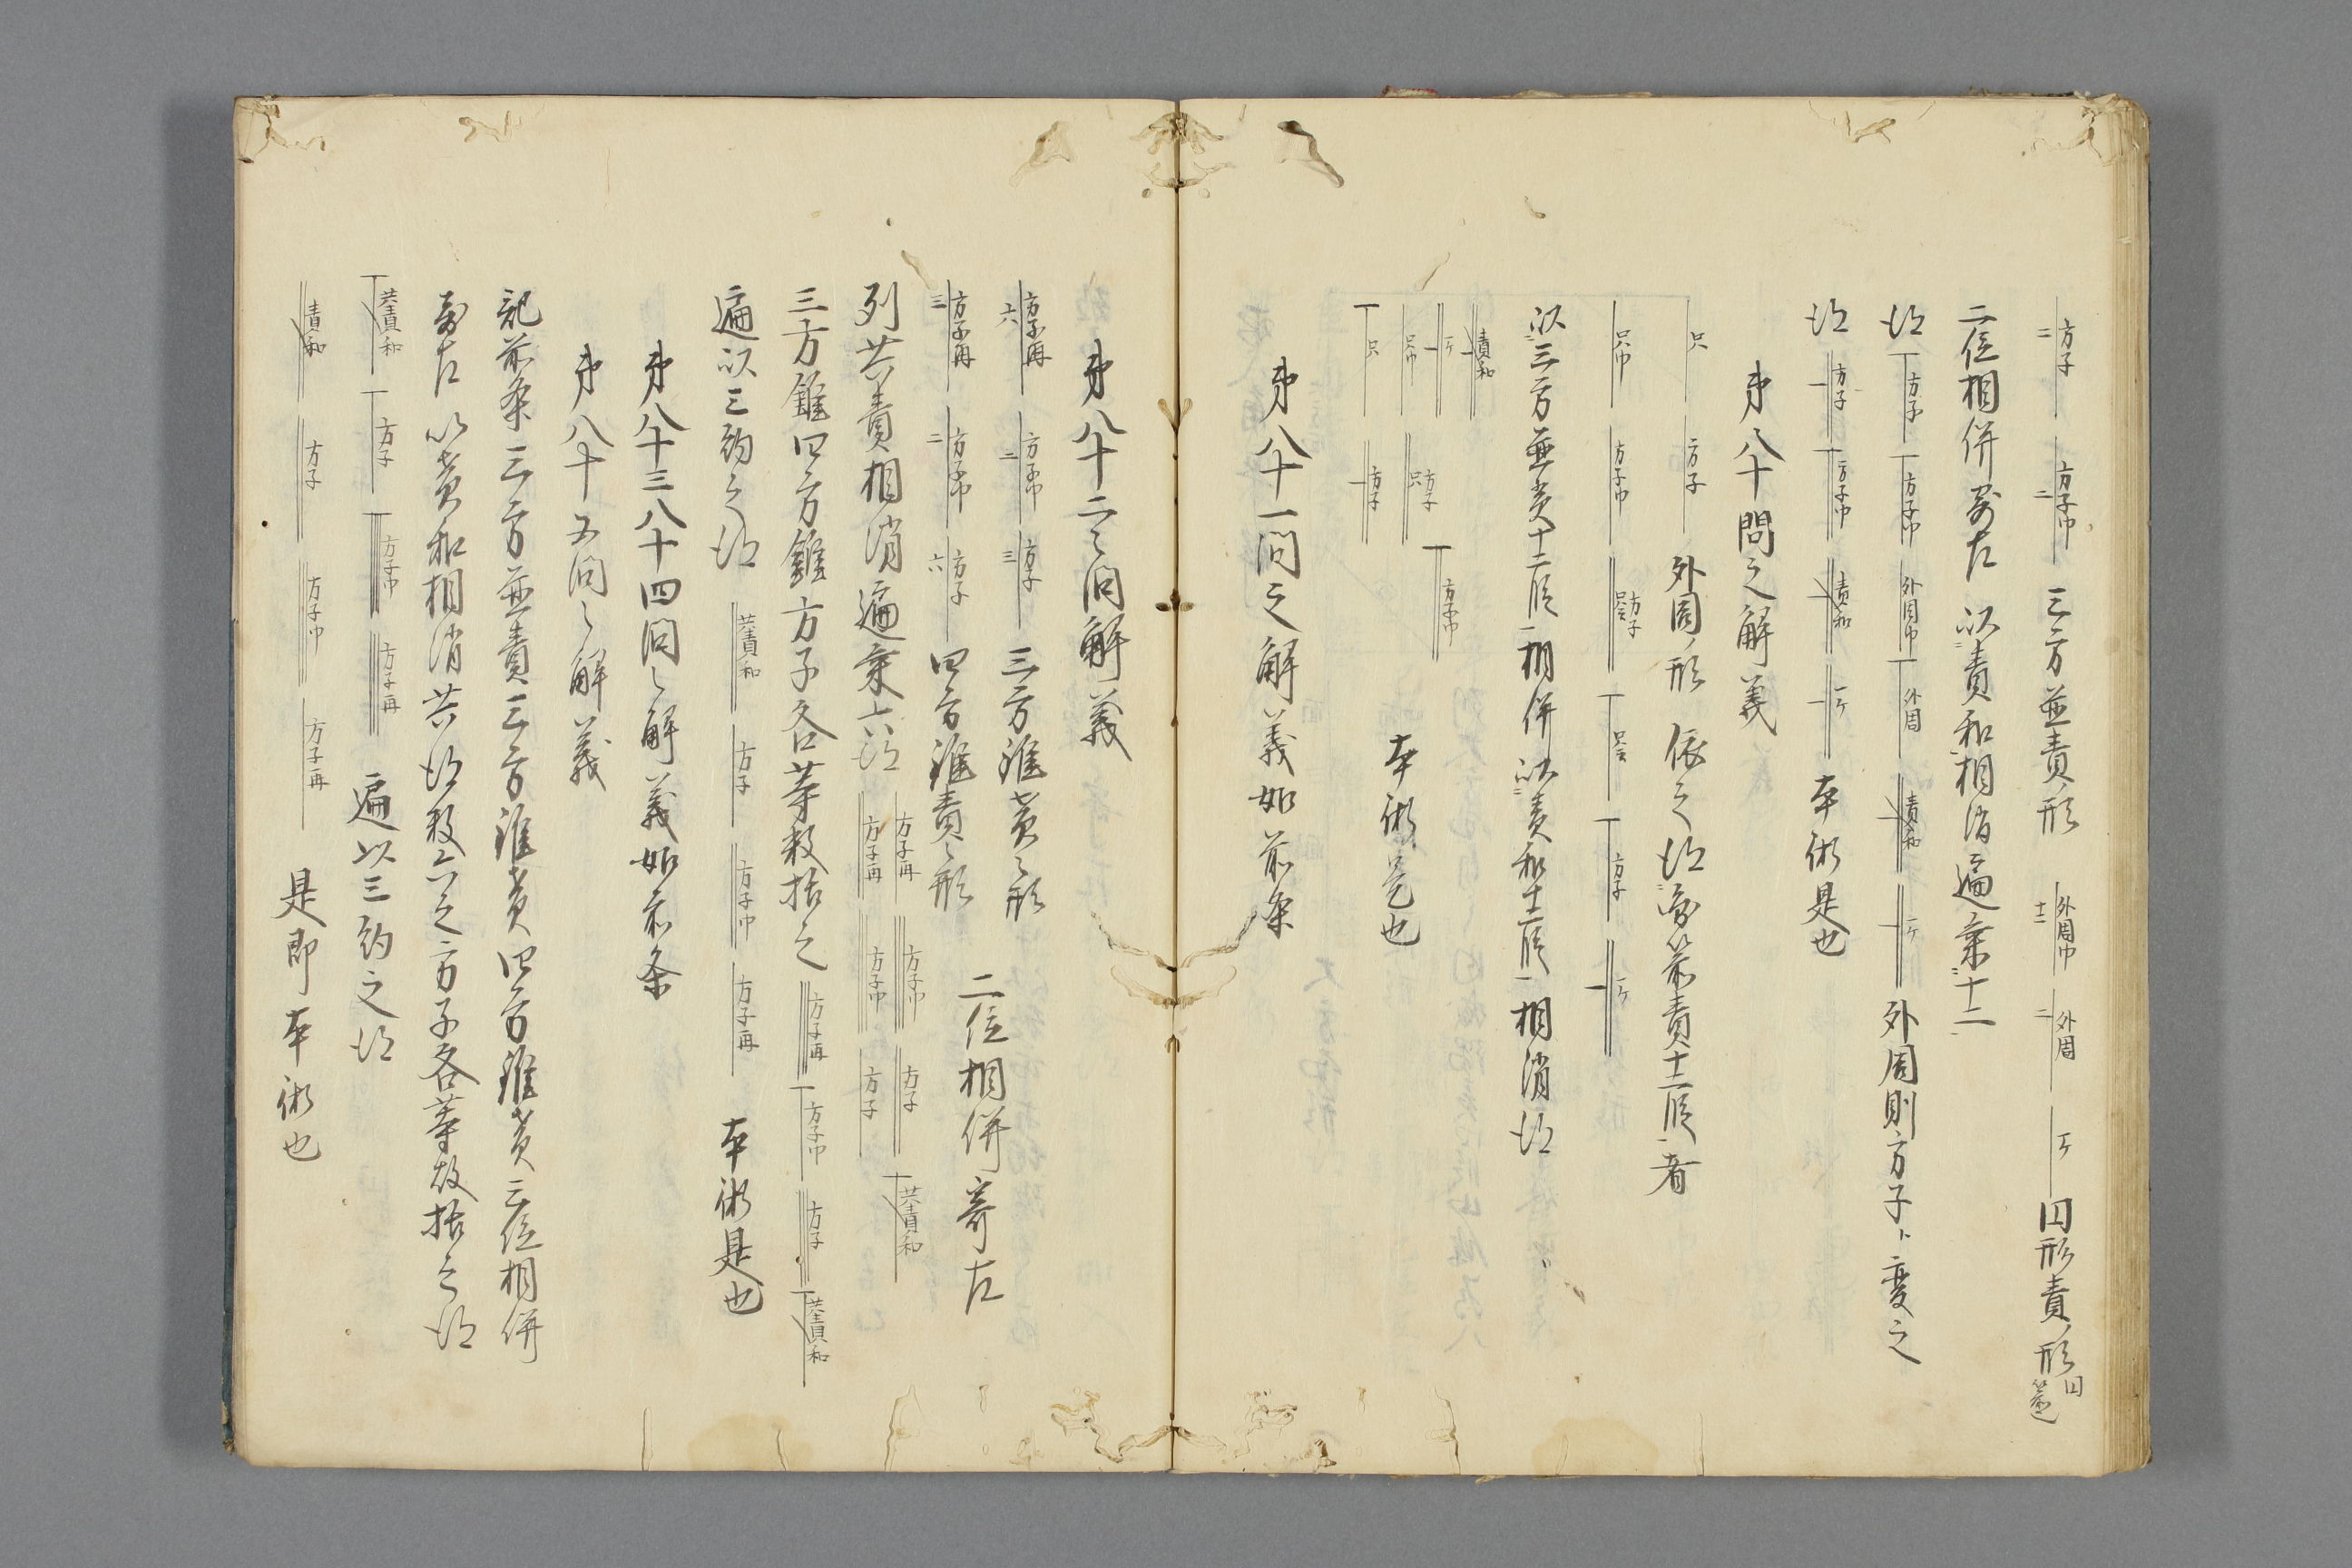 二 方子 二 方子巾 三方並責ノ形 十二 外周巾 二 外周 一ケ 囚形責ノ形
二位相併寄左 以責和相消遍乗十二
得 方子 方子巾 外周巾 外周 責和 一ケ 外周則方子ト変之
得 方子 方子巾 責和 一ケ 本術是也
第八十問之解義
只 方子 外周ノ形 依之得 責十二段 者
只巾 方子巾 方子 只 方子 一ケ
以三方並責十二段 相併以責和十二段 相消得
責和
一ケ 方子巾
只巾 方子 只
只 方子 本術是也
第八十一問之解義如前条
第八十二之問解義
六 方子再 二 方子巾 三 方子 三方錐責之形
三 方子再 二 方子巾 六 方子 四方錐責之形 二位相併寄左
列共責相消遍乗六得 方子再 方子巾 方子 共責和 方子再 方子巾 方子
三方錐四方錐方子各等数括之 方子再 方子巾 方子 共責和
遍以三約之得 共責和 方子 方子巾 方子再 本術是也
第八十三八十四問之解義如前条
第八十五問之解義
記前条三方並責三方錐責四方錐責三位相併
寄左 以責和相消共得数六之方子各等故括之得
共責和 方子 方子巾 方子再 遍以三約之得
責和 方子 方子巾 方子再 是即本術也